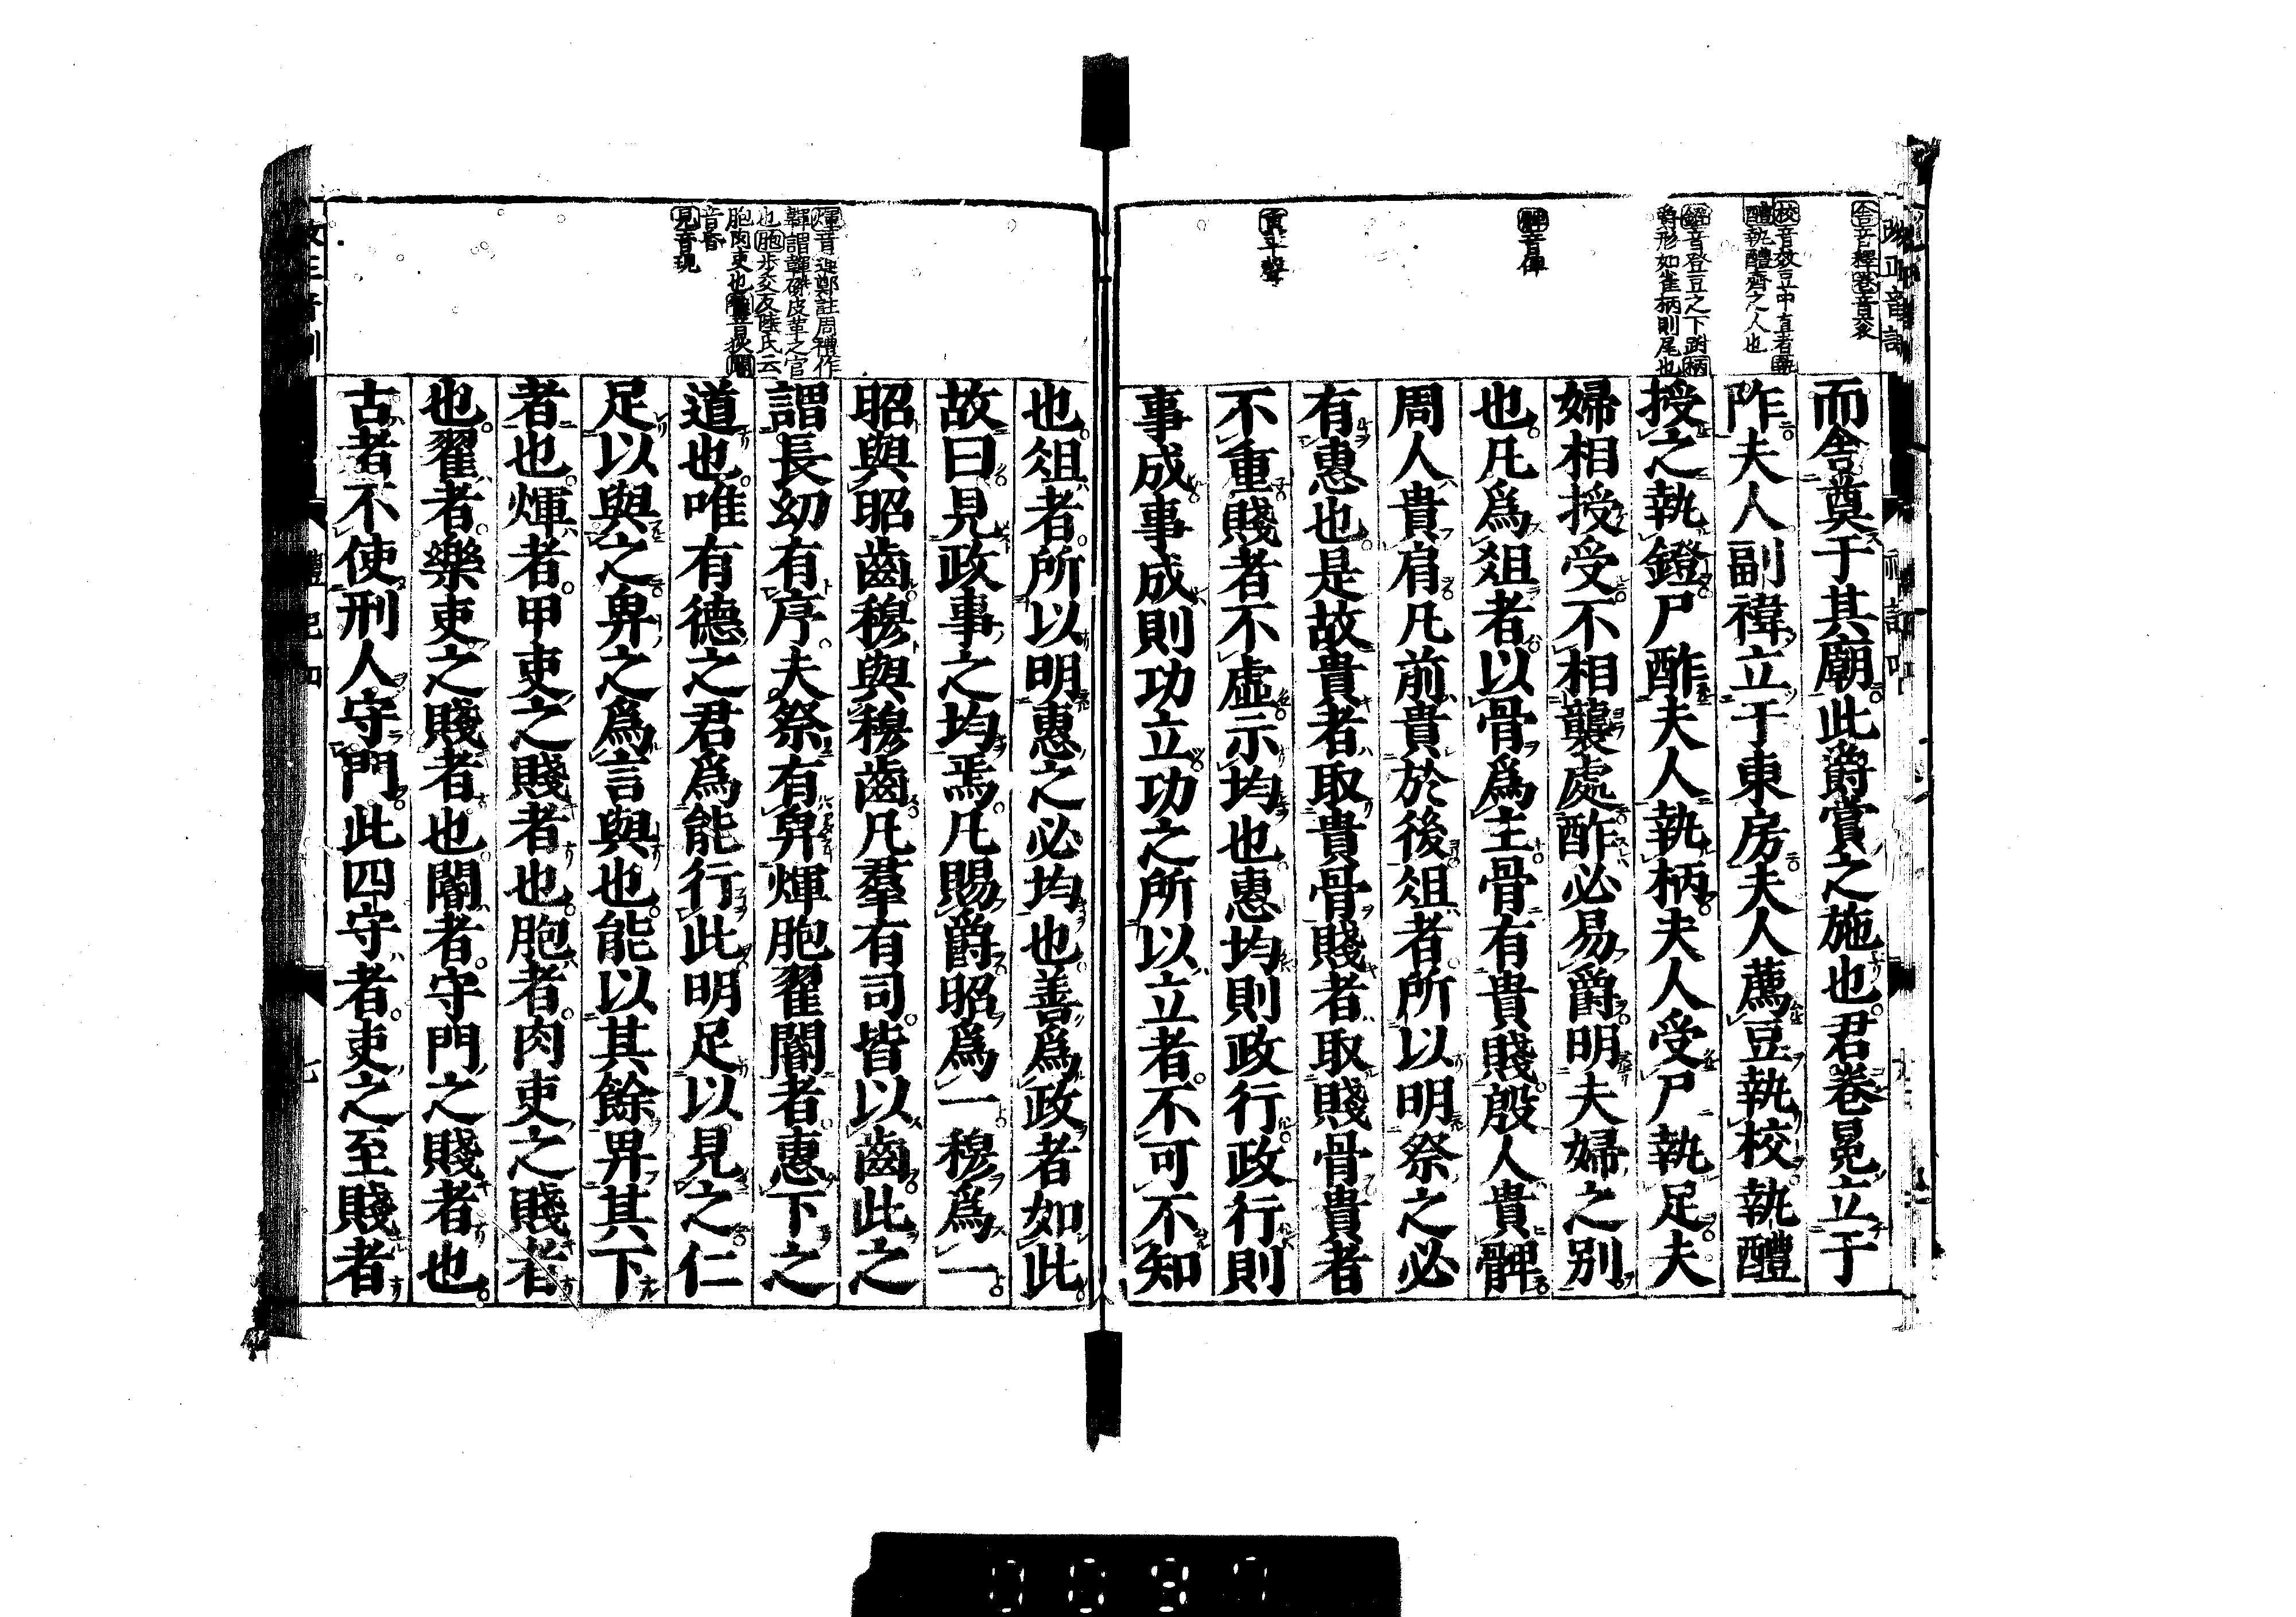 而舎奠于其廟此爵賞之施也。君卷冕立于
阼夫人副褘立于東房夫人薦豆執校執醴
授之執鐙尸酢夫人執柄夫人受尸執足夫
婦相授受不相襲處酢必易爵明夫婦之別
也凡爲俎者以骨爲主骨有貴賤殷人貴髀
周人貴肩凡前貴於後俎者所以明祭之必
有惠也。是故貴者取貴骨賤者取賤骨貴者
不重賤者不虛示均也惠均則政行政行則
事成事成則功立功之所以立者。不可不知
也。俎者。所以明惠之必均也善爲政者如此
故曰見政事之均焉。凡賜爵昭爲一穆爲一
昭與昭齒穆與穆齒。凡羣有司。皆以齒此之
謂長幼有序。夫祭有畀煇胞翟閽者。惠下之
道也。唯有德之君爲能行此明足以見之仁
足以與之畀之爲言與也。能以其餘畀其下
者也。煇者。甲吏之賤者也。胞者。肉吏之賤者
也。翟者。樂吏之賤者也。閽者。守門之賤者也。
古者不使刑人守門。此四守者。吏之至賤者
舎音釋卷音袞
校音效豆中直者執
醴執醴齊之人也
鐙音登豆之下跗柄
爵形如雀柄則尾也
髀音俾
重平聲
煇音運鄭註周禮作
韗謂韗磔皮革之官
也胞步交反陸氏云
胞肉吏也翟音狄閽
音昏
見音現